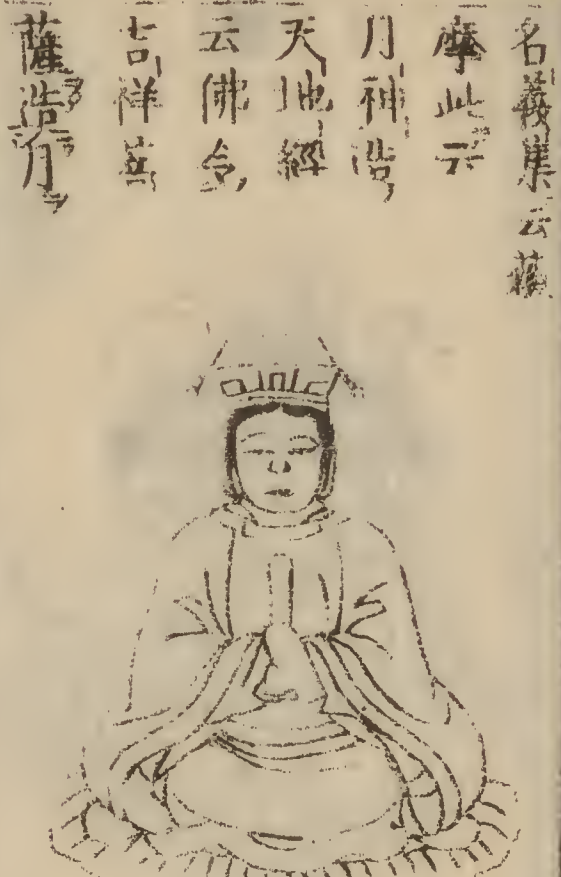 名義集云蘇
摩此云
月神造
天地經
云佛令
吉祥菩
薩造月